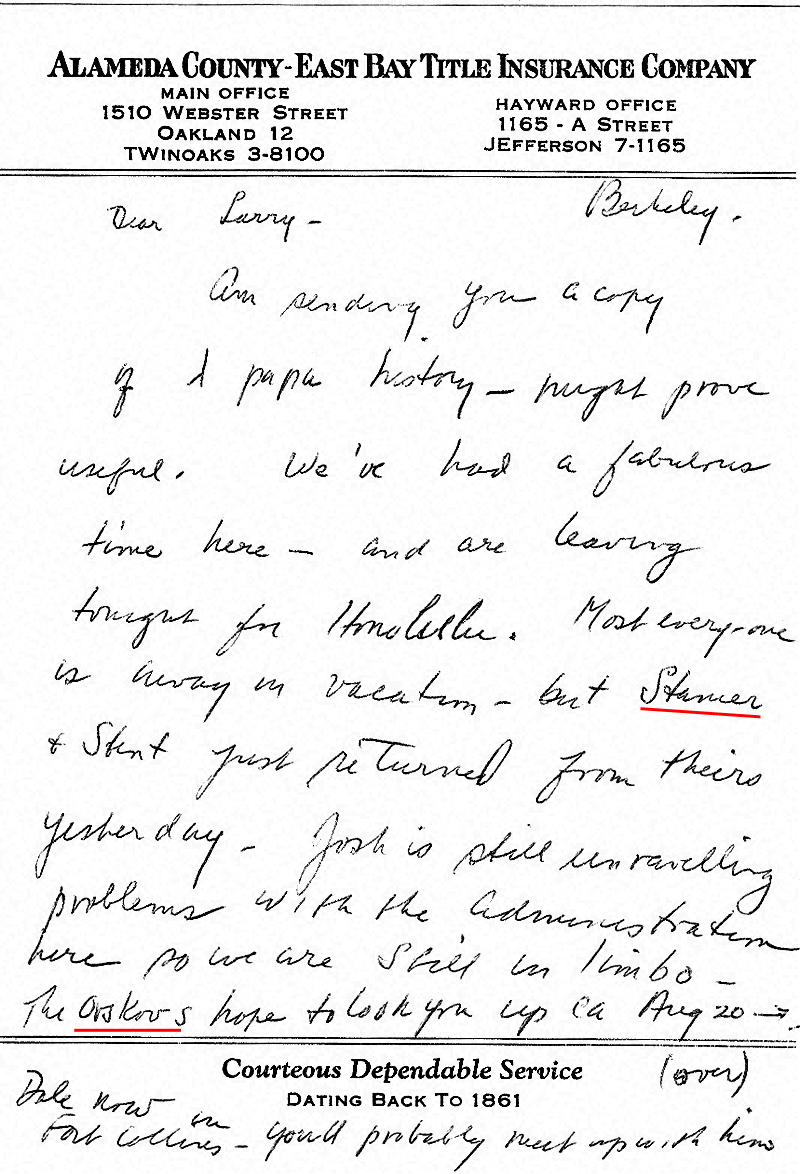 ALAMEDA COUNTY-EAST BAY TITLE INSURANCE COMPANY
MAIN OFFICE
1510 WEBSTER STREET
OAKLAND 12
TWINOAKS 3-8100
HAYWARD OFFICE
1165 - A STREET
JEFFERSON 7-1165
Berkeley.
Dear Larry -
Am sending you a copy
of papa history - might prove
useful. We've had a fabulous
time here - and are leaving
tonight for Honolulu. Most everyone
is away on vacation - but Stanier
& Stent just returned from theirs
yesterday - Josh is still unravelling
problems with the administration
here so we are still in limbo -
The Orskovs hope to look you up ca Aug 20 →
Courteous Dependable Service
DATING BACK TO 1861
(over)
Dale now in
Fort Collins - you'll probably meet up with him